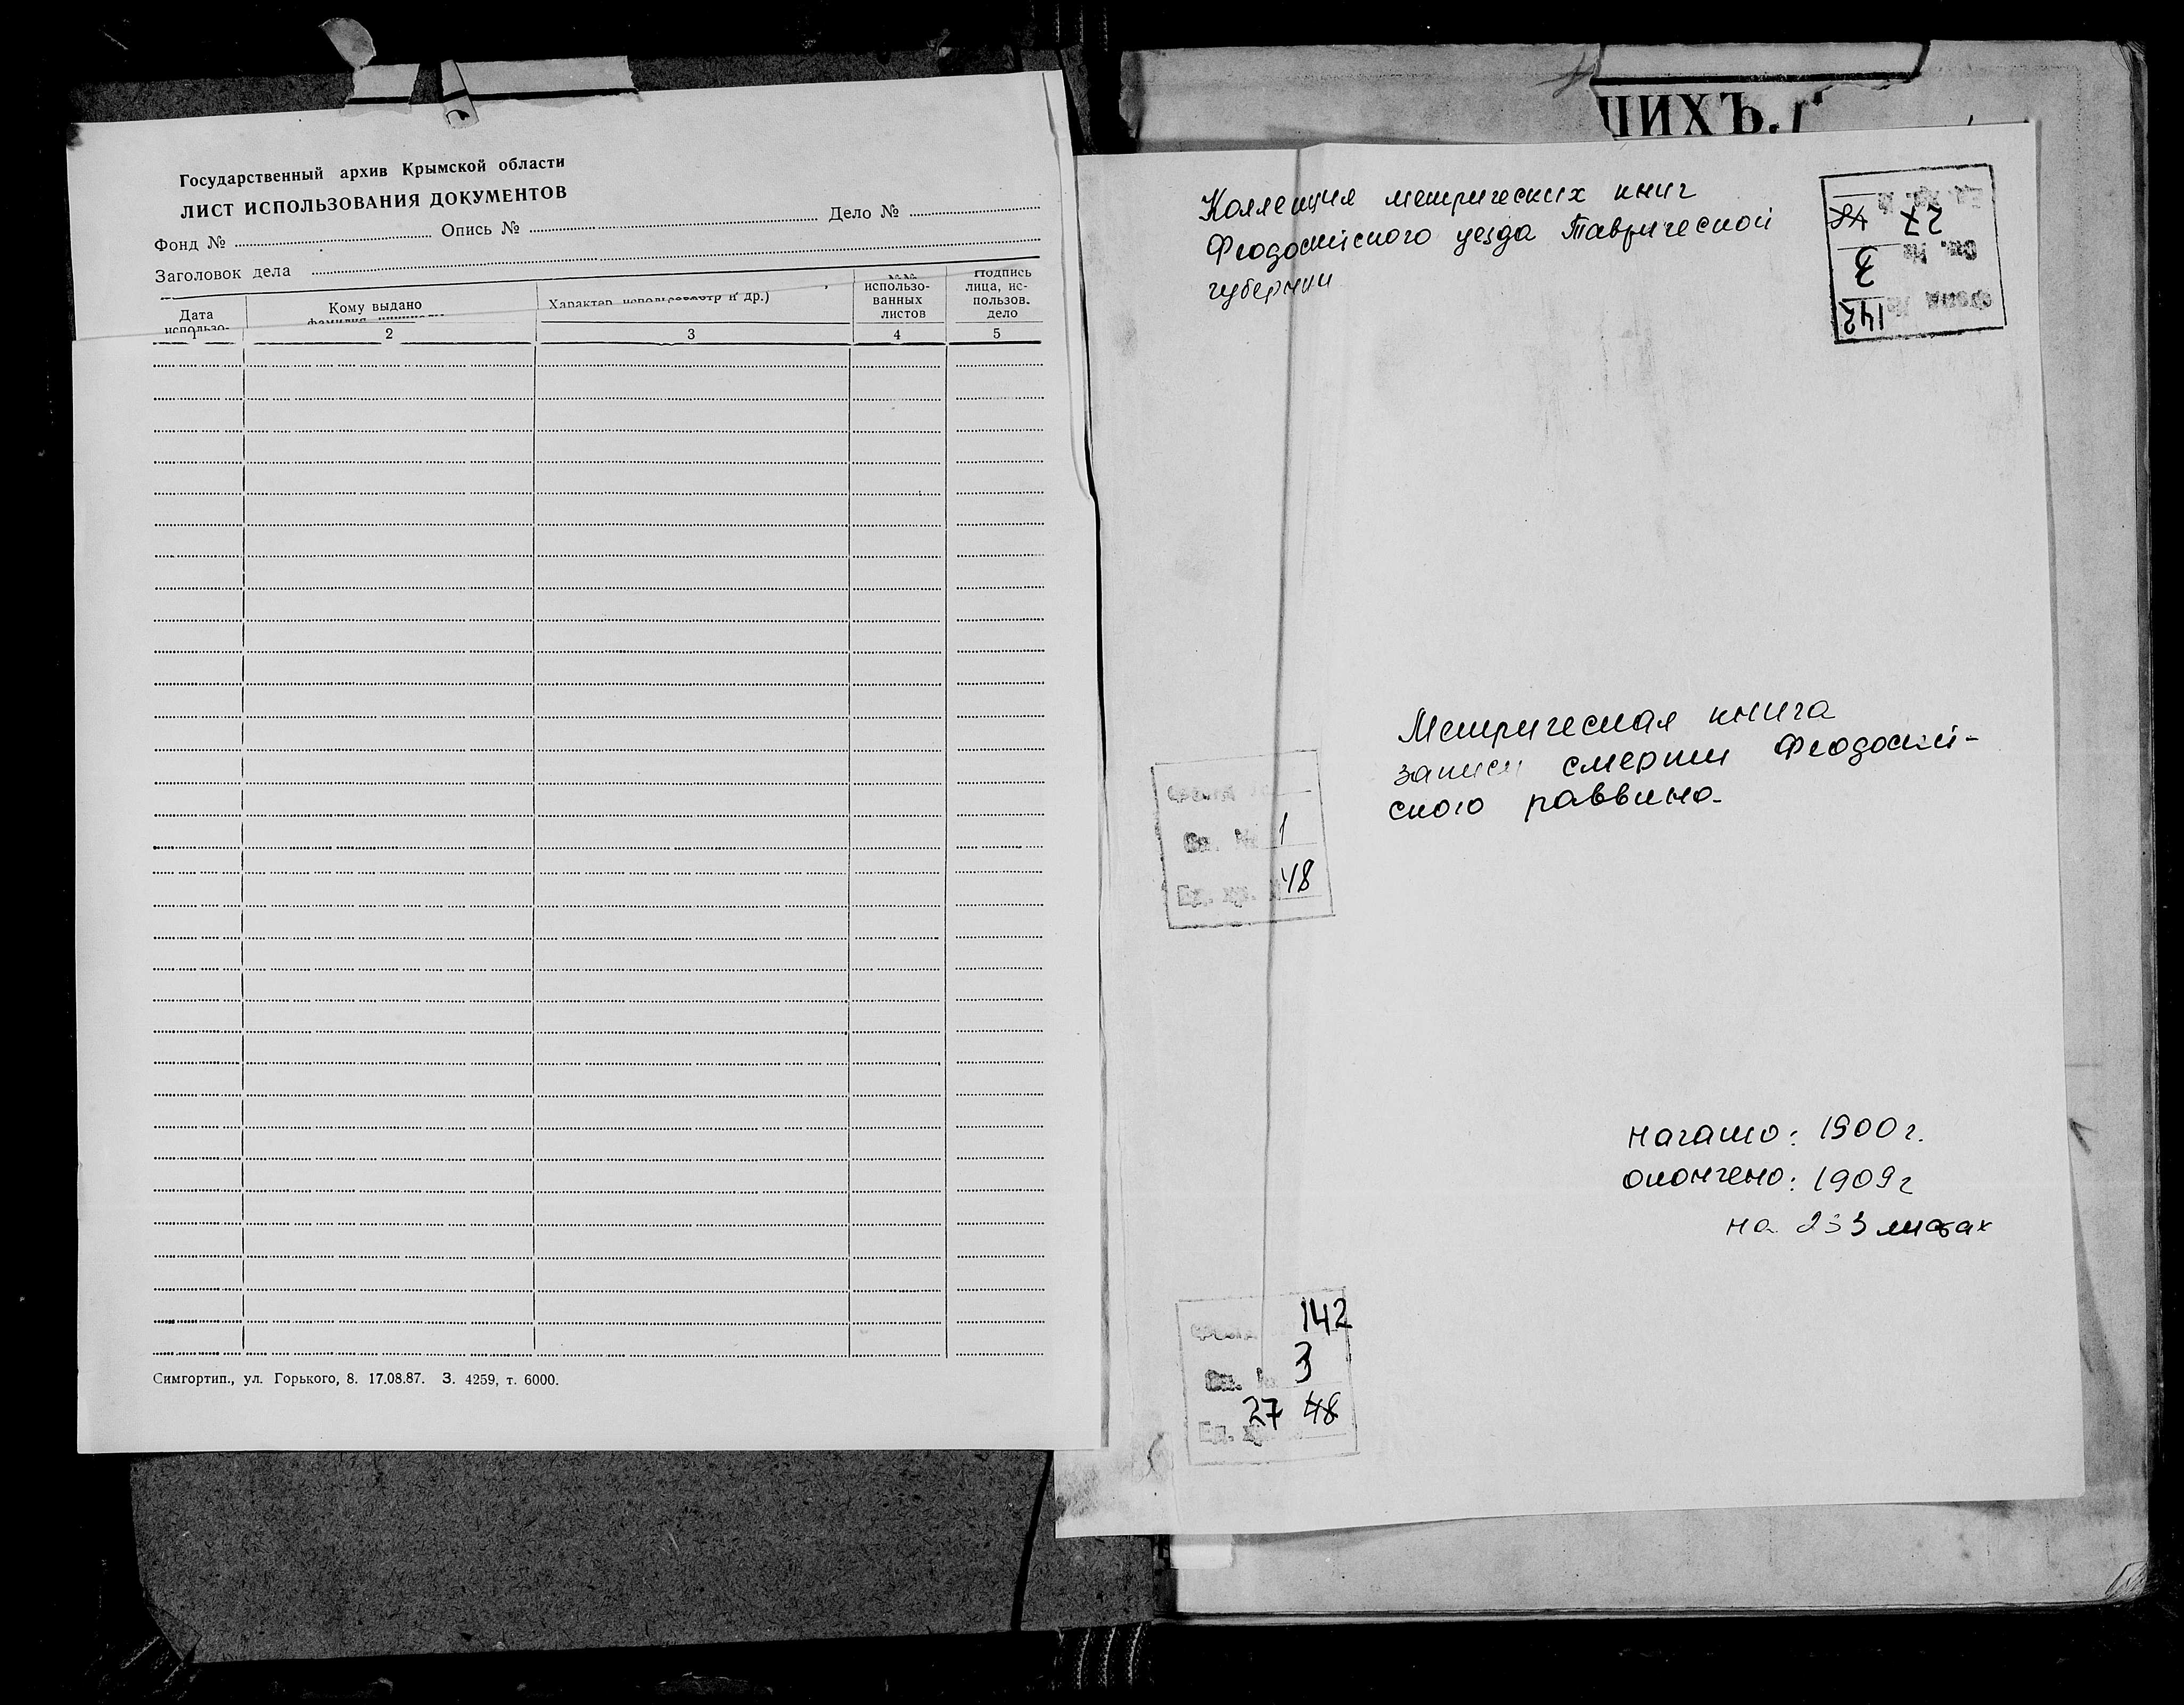 Государственный архив Крымской области
ЛИСТ ИСПОЛЬЗОВАНИЯ ДОКУМЕНТОВ
Фонд № Опись № Дело №
Заголовок дела
Дата
использо-
Кому выдано
фамилия
Характер
тр и др.)
№№
использо-
ванных
листов
Подпись
лица, ис-
пользов.
дело
1 2 3 4 5
Симгортип., ул. Горького, 8. 17.08.87. З. 4259, т. 6000.
ШИХЪ.
Коллекция метрических книг
Феодосийского уезда Таврической
губернии
Фонд № 142
Оп. № 3
Ед. хр. № 27 48
Метрическая книга
записи смерти Феодосий-
ского раввина.
Фонд №
Оп. № 1
Ед. хр. 48
начато: 1900 г.
окончено: 1909 г
на 233 листах
Фонд 142
Оп. № 3
Ед. хр. 27 48